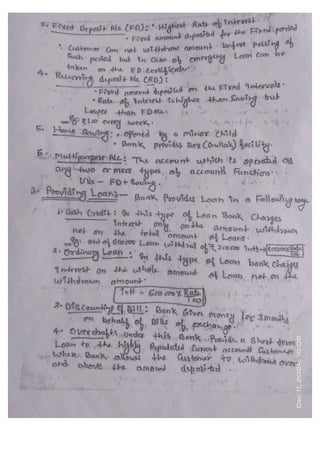 3. Fixed Deposit A/c (FD):- • Highest Rate of Interest.
• Fixed amount deposited for the Fixed period
• Customer Can not withdraw amount before passing of
Such period but in Case of emergency Loan can be
taken on the FD certificate.
4. Recurring deposit A/c (RD):
• Fixed amount deposited on the Fixed Intervals.
• Rate of Interest is higher than Saving but
Lower than FD a/c.
Eg ₹100 every week.
5. Home Saving: • opened by a minor child
• Bank provides Box (Gullak) facility.
6. Multipurpose A/c: The account which is operated as
any two or more types of accounts Function.
Like - FD + Saving.
3. Providing Loans:- Bank Provids Loan in a Following ways
1. Cash Credit: In this type of Loan Bank Charges
interest only on the amount withdrawn
not on the total amount of Loans.
Eg out of 500000 Loan withdrawl of ₹ 200000 intt = 200000 x Rate/100
2. Ordinary Loan: In this type of Loan bank charges
Interest on the whole amount of Loan not on the
withdrawn amount.
Intt = 500000 x Rate/100
3. Discounting of Bill: Bank Given money for 3 months
on behalf of Bills of exchange.
4. Overdraft: under this Bank Provide a Short term
Loan to the highly Reputeded Current account Customers
Where Bank allows the Customer to withdraw over
and above the amount deposited.
Dec 11, 2024, 10:08